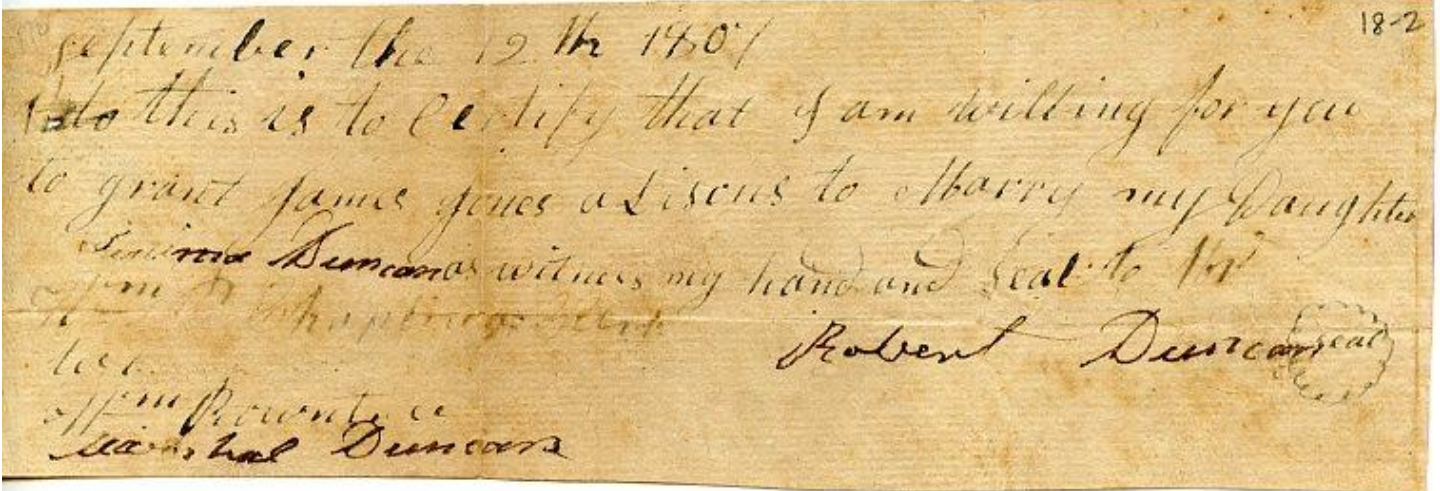 18-2
September the 12 th 1807
I do this is to Certify that I am willing for you
to grant James jones a Lisons to Marry my Daughter
Duncan as witness my hand and Seal to
Robert Duncan seal
Rowntree
Marshal Duncan